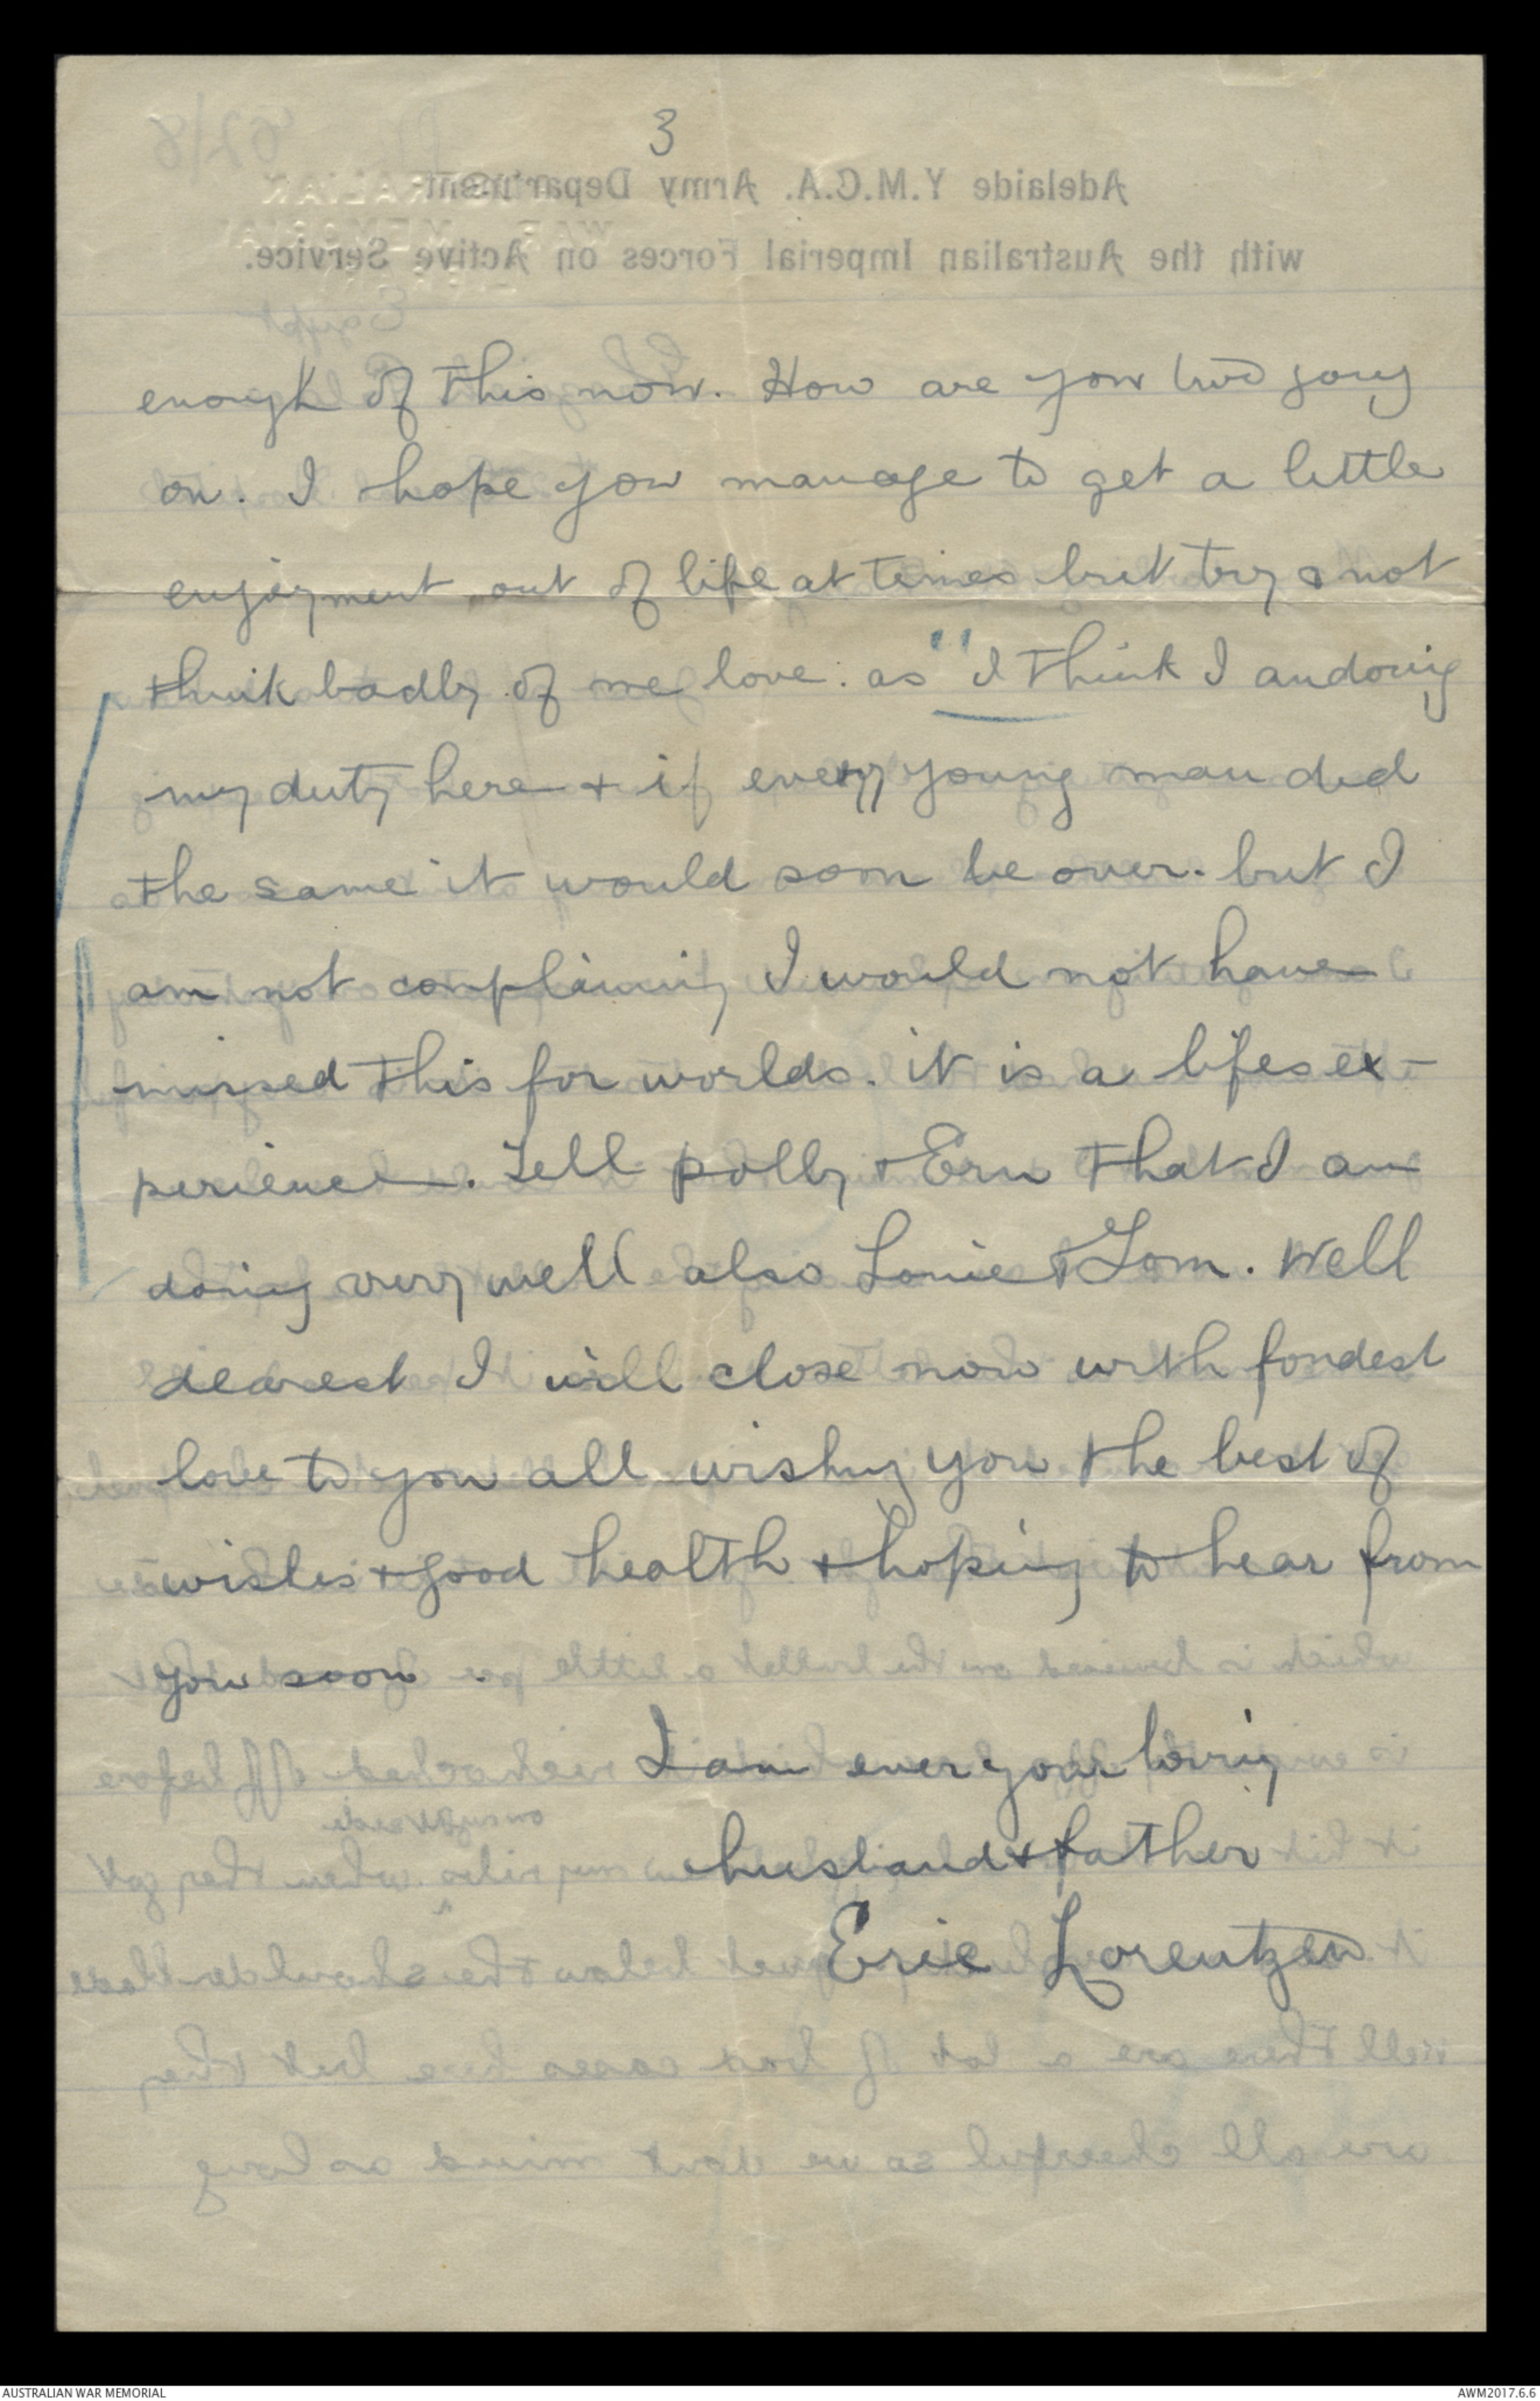 3
enough of this now. How are you two going
on. I hope you manage to get a little
enjoyment out of life at times but try & not
think badly of me love. as "I think I am doing
my duty here & if every young man did
the same it would soon be over. but I
am not complaining I would not have
missed this for worlds. it is a lifes ex-
perience. Tell polly & Ern that I am
doing very well also Louie & Tom. Well
dearest I will close now with fondest
love to you all wishing you the best of
wishes & good health & hoping to hear from
you soon.
I am ever your loving
husband & father
Eric Lorentzen
AUSTRALIAN WAR MEMORIAL
AWM2017.6.6